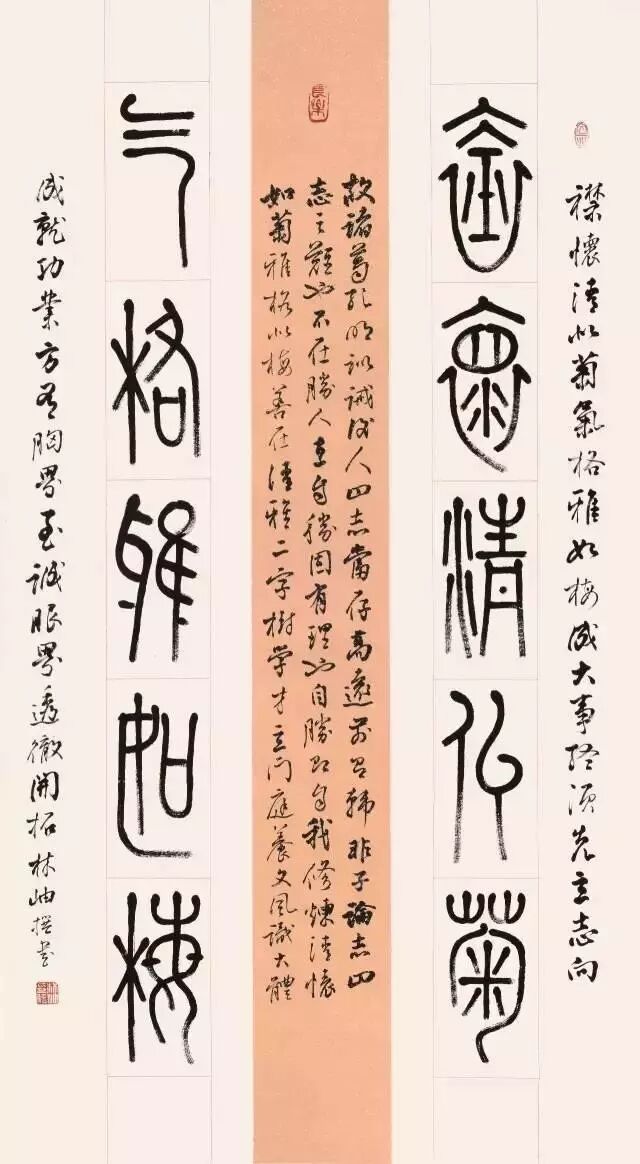 襟懷清似菊氣格雅如梅成大事終須先立志向
襟懷清似菊
長樂
故諸葛孔明訓誡後人曰志當存高遠前有韓非子論志曰
志之難也不在勝人在自勝固有理也自勝即自我修煉清懷
如菊雅格似梅善在清雅二字樹學才立門庭養文風識大體
气格雅如梅
成就功業方有胸界至誠眼界透徹開拓林岫撰書